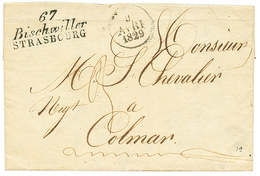 67
Bischwiller
STRASBOURG
AVRI
1829
Monsieur
M. S. Chevalier
Negt
à
Colmar.